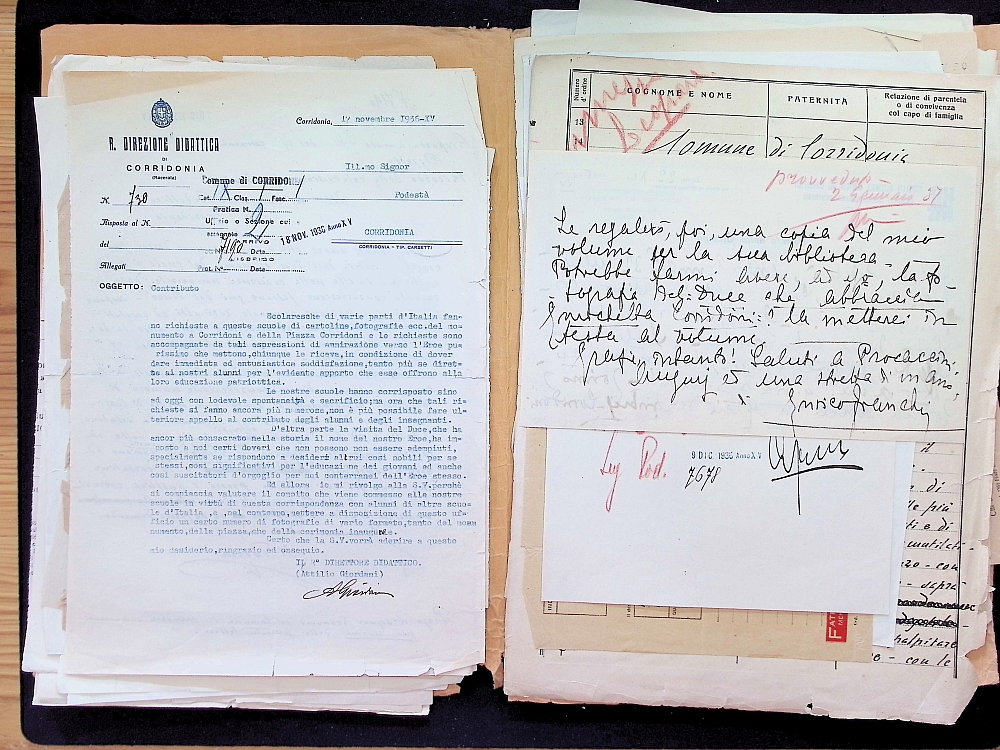 Corridonia, 17 novembre 1936-XV
R. DIREZIONE DIDATTICA
DI
CORRIDONIA
(Macerata)
Ill.mo Signor
Comune di CORRIDONIA
Cat. IX Clas. Fasc.
N. 730
Podestà
Pratica N.
Risposta al N.
Ufficio o Sezione cui è
assegnato
ARRIVO 18 NOV. 1936 Anno XV
CORRIDONIA
CORRIDONIA - TIP. CARSETTI
del
N. 7120 Data
RISPOSTO
Allegati
Prot. N. Data
OGGETTO: Contributo
Scolaresche di varie parti d'Italia fan-
no richiesta a queste scuole di cartoline,fotografie ecc.del mo-
numento a Corridoni e della Piazza Corridoni e le richieste sono
accompagnate da tali espressioni di ammirazione verso l'Eroe pu-
rissimo che mettono,chiunque le riceva,in condizione di dover
dare immediata ed entusiastica soddisfazione,tanto più se diret-
te ai nostri alunni per l'evidente apporto che esse offrono alla
loro educazione patriottica.
Le nostre scuole hanno corrisposto sino
ad oggi con lodevole spontaneità e sacrificio;ma ora che tali ri-
chieste si fanno ancora più numerose,non è più possibile fare ul-
teriore appello al contributo degli alunni e degli insegnanti.
D'altra parte la visita del Duce,che ha
ancor più consacrato nella storia il nome del nostro Eroe,ha im-
posto a noi certi doveri che non possono non essere adempiuti,
specialmente se rispondono a desideri altrui così nobili per se
stessi,così significativi per l'educazione dei giovani ed anche
così suscitatori d'orgoglio per noi conterranei dell'Eroe stesso.
Ed allora io mi rivolgo alla S.V.perchè
si compiaccia valutare il compito che viene commesso alle nostre
scuole in virtù di questa corrispondenza con alunni di altre scuo-
le d'Italia e,nel contempo,mettere a disposizione di questo uf-
ficio un certo numero di fotografie di vario formato,tanto del monu
numento,della piazza,che della cerimonia inaugurale.
Certo che la S.V.vorrà aderire a questo
mio desiderio,ringrazio ed ossequio.
IL R° DIRETTORE DIDATTICO.
(Attilio Giordani)
A Giordani
Numero d'ordine
COGNOME E NOME
PATERNITÀ
Relazione di parentela
o di convivenza
col capo di famiglia
13
14
Comune di Corridonia
provveduto
2 Gennaio 37
Le regalerò, poi, una copia del mio
volume per la sua biblioteca.
Potrebbe farmi avere, ed ciò, la fo-
tografia del Duce che abbraccia
Enrichetta Corridoni? La metterei in
testa al volume.
Grazie, intanto! Saluti a Procaccini,
Luigi ed una stretta di mano
di Enrico Franchi
Sig Pod.
9 DIC. 1936 Anno XV
7678
di
le più
ti e di
mutilati-
zo - con
- sapra
palpitare
- con le